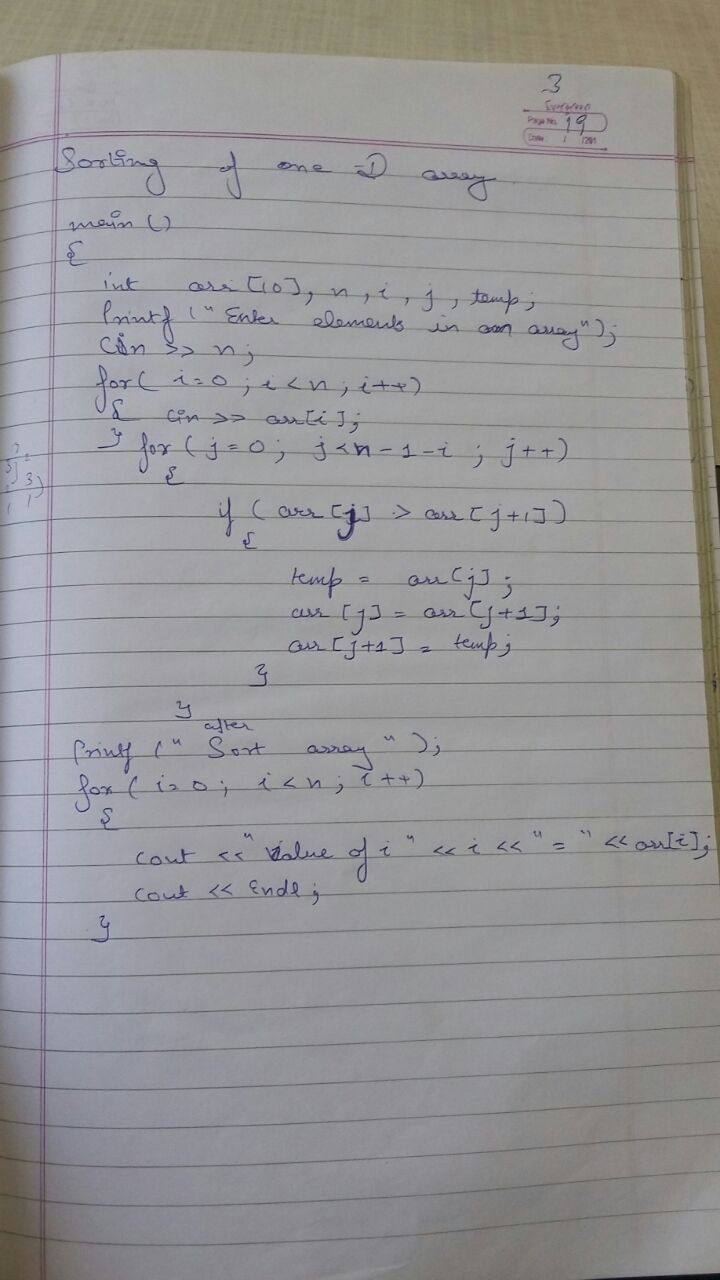 3
Evergreen
Page No. 19
Date: / /201
Sorting of one -D array
main ()
{
int arr [10], n, i, j, temp;
Printf (" Enter elements in an array");
Cin >> n;
for( i=0 ; i<n ; i++)
{ Cin >> arr[i];
} for (j=0; j<n-1-i ; j++)
{
if ( arr [j] > arr [j+1])
{
temp = arr[j];
arr [j] = arr [j+1];
arr [j+1] = temp;
}
}
after
Printf (" Sort array ");
for ( i=0; i<n; i++)
{
cout <<" Value of i " << i << " = " << arr[i];
cout << Endl;
}